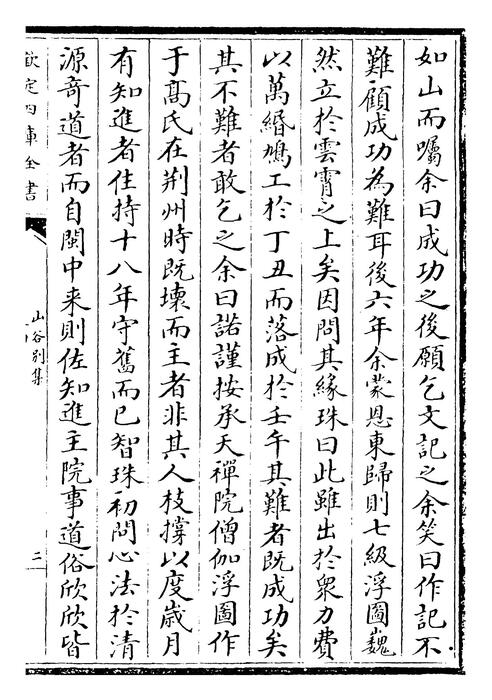 如山而囑余曰成功之後願乞文記之余笑曰作記不
難顧成功為難耳後六年余蒙恩東歸則七級浮圖巍
然立於雲霄之上矣因問其緣珠曰此雖出於衆力費
以萬緡鳩工於丁丑而落成於壬午其難者既成功矣
其不難者敢乞之余曰諾謹按承天禪院僧伽浮圖作
于髙氏在荆州時既壊而主者非其人枝撐以度歳月
有知進者住持十八年守舊而已智珠初問心法於清
源竒道者而自閩中来則佐知進主院事道俗欣欣皆
欽定四庫全書
山谷別集
二